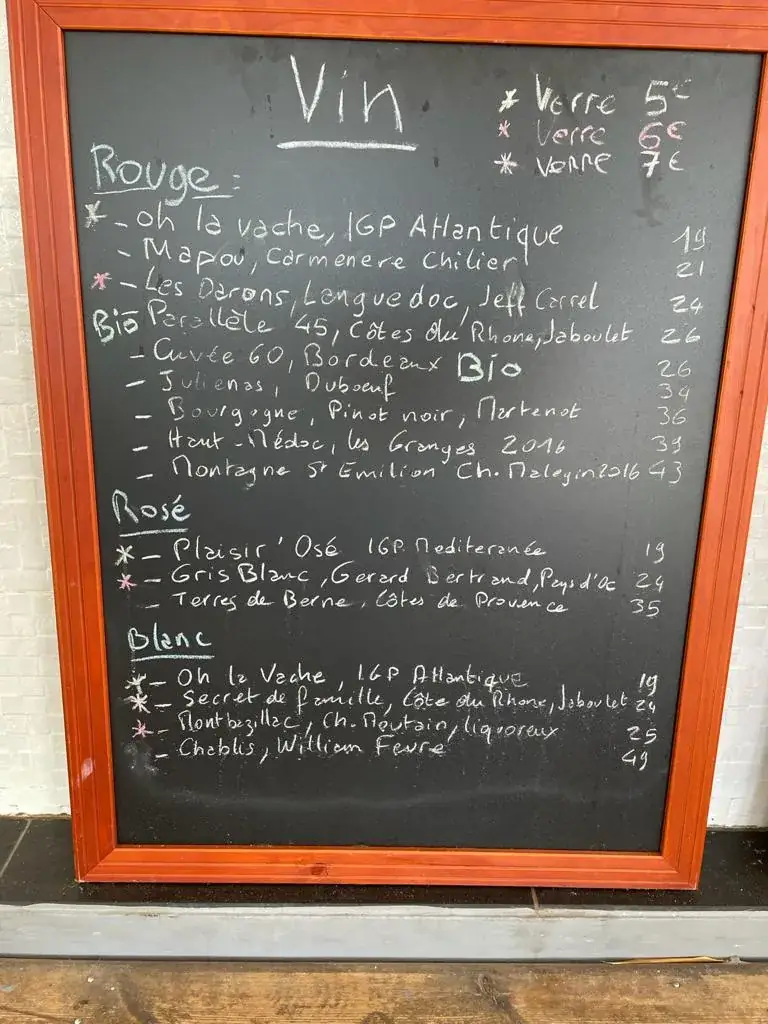 Vin
* Verre 5€
* Verre 6€
* verre 7€
Rouge :
* - oh la vache, IGP Atlantique 19
- Mapou, Carmenere Chilier 21
* - Les Darons, Languedoc, Jeff Carrel 24
Bio - Parallèle 45, Côtes du Rhone, Jaboulet 26
- Cuvée 60, Bordeaux Bio 26
- Julienas, Duboeuf 34
- Bourgogne, Pinot noir, Martenot 36
- Haut-Médoc, les Granges 2016 39
- Montagne St Emilion Ch. Malegin 2016 43
Rosé
* - Plaisir' Osé IGP Mediteranée 19
* - Gris Blanc, Gerard Bertrand, Pays d'Oc 24
- Terres de Berne, Côtes de Provence 35
Blanc
* - Oh la Vache, IGP Atlantique 19
* - Secret de famille, Côte du Rhone, Jaboulet 24
* - Montbazillac, Ch. Moutain, liquoreux 25
- Chablis, William Fevre 49